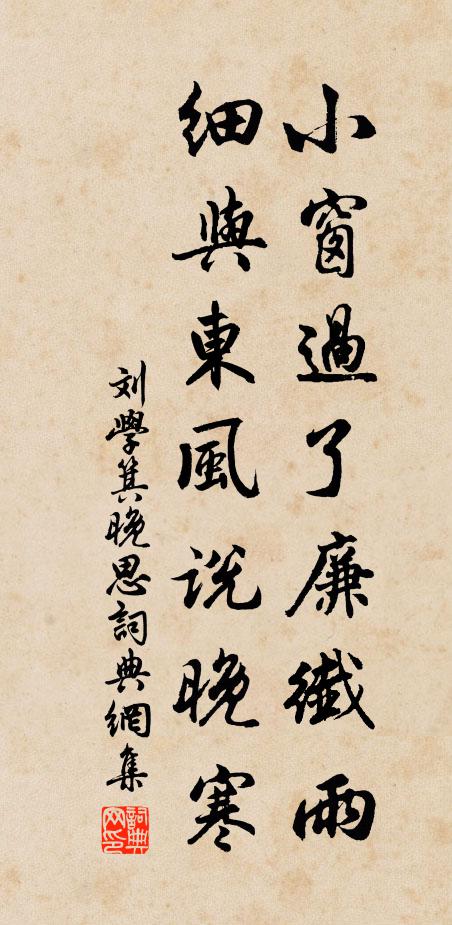 小窗過了廉纖雨
細與東風說晚寒
刘學箕晚思詞典網集
詞典網印